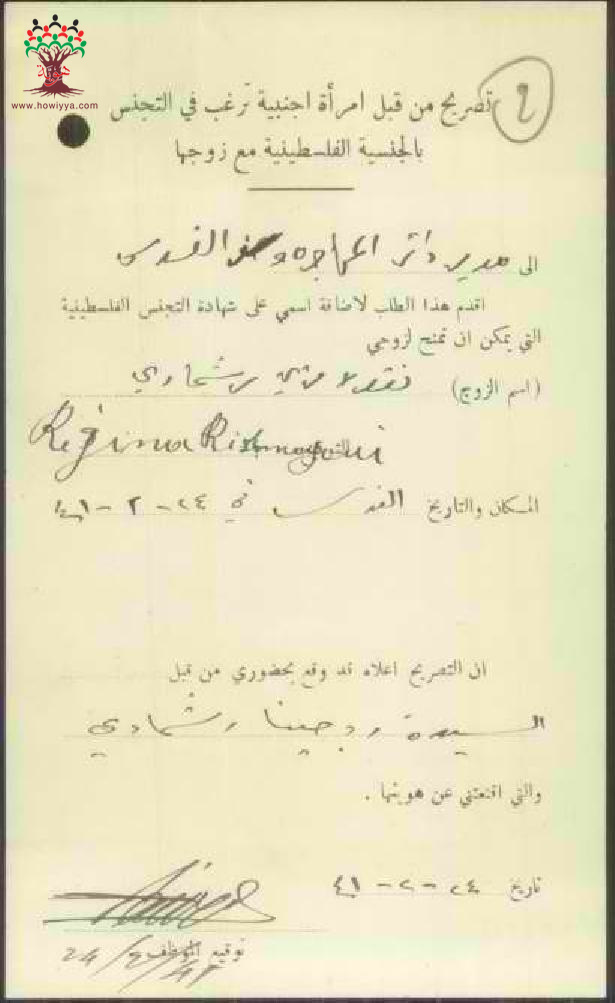 www.howiyya.com
2
تصريح من قبل امرأة اجنبية ترغب في التجنس
بالجنسية الفلسطينية مع زوجها
الى مدير دائرة المهاجرة القدس
اقدم هذا الطلب لاضافة اسمي على شهادة التجنس الفلسطينية
التي يمكن ان تمنح لزوجي
(اسم الزوج) نقولا
Regina
المكان والتاريخ القدس في ٢٤ - ٢ - ٤١
ان التصريح اعلاه قد وقع بحضوري من قبل
السيدة رجينا رشماوي
والتي اقنعتني عن هويتها .
تاريخ ٢٤ - ٢ - ٤١
توقيع الموظف
24/2/41